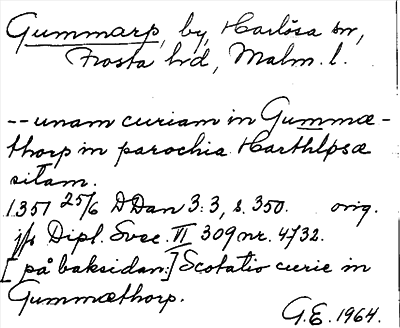 Gummarp, by, Harlösa sn,
Frosta hd, Malm. l.
-- unam curiam in Gummæ-
thorp in parochia Harthløsæ
sitam.
1351 25/6 DDan 3:3, s. 350. orig.
jfr Dipl. Svec. VI 309 nr. 4732.
[på baksidan:] Scotatio curie in
Gummæthorp.
G.E. 1964.